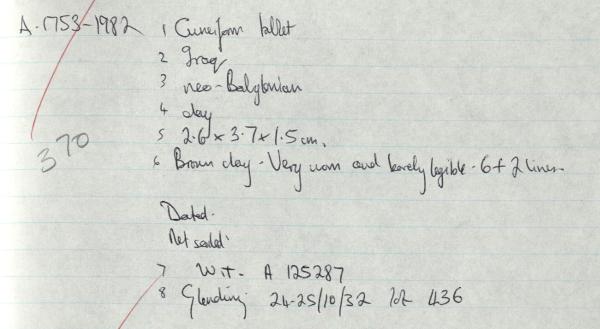 A.1753-1982 1 Cuneiform tablet
2 Iraq
3 neo-Babylonian
4 clay
5 2.6 x 3.7 x 1.5 cm.
370
6 Brown clay - Very worn and barely legible - 6 + 2 lines
Dated.
Not sealed.
7 W.t. A 125287
8 Glending 24-25/10/32 lot 436